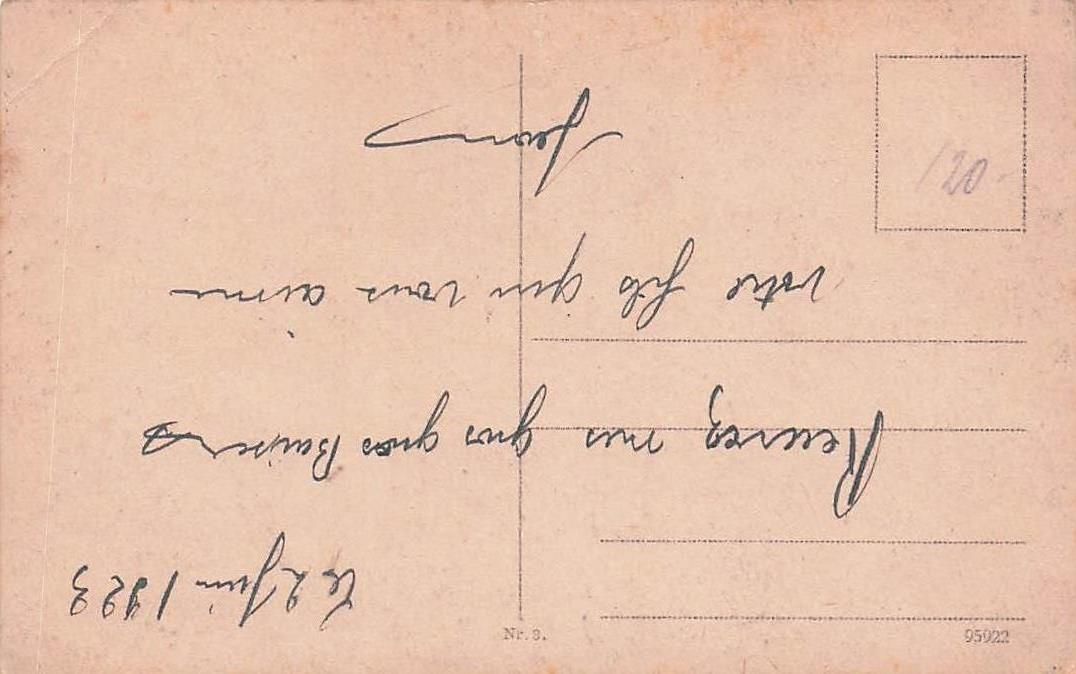 le 2 Juin 1923
Recevez mes gros gros Baisers
votre fils qui vous aime
Jean
120-
Nr. 8.
95922